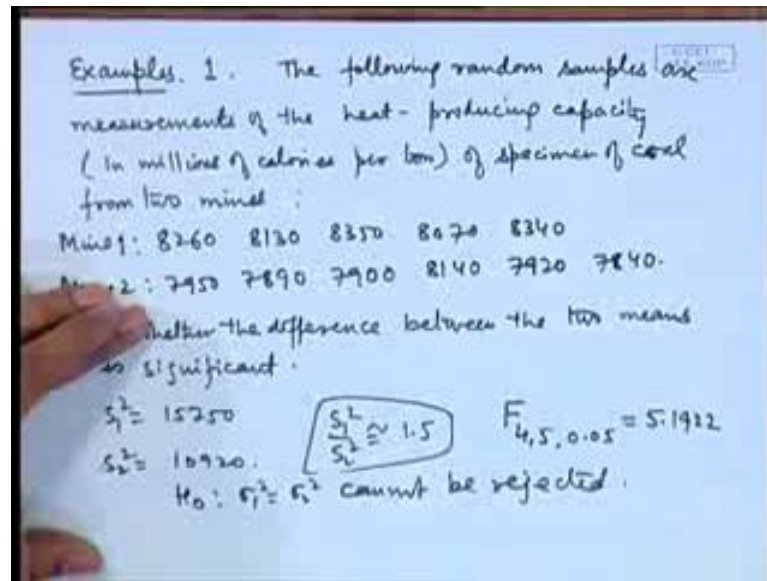 Examples. 1. The following random samples are
measurements of the heat-producing capacity
(in millions of calories per ton) of specimen of coal
from two mines :
Mine 1: 8260 8130 8350 8070 8340
2: 7950 7890 7900 8140 7920 7840.
whether the difference between the two means
is significant.
s₁² = 15750 s₁²/s₂² ≅ 1.5 F₄,₅,₀.₀₅ = 5.1922
s₂² = 10920.
H₀: σ₁² = σ₂² cannot be rejected.